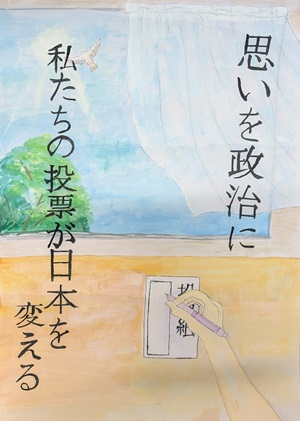 思いを政治に
私たちの投票が日本を
変える